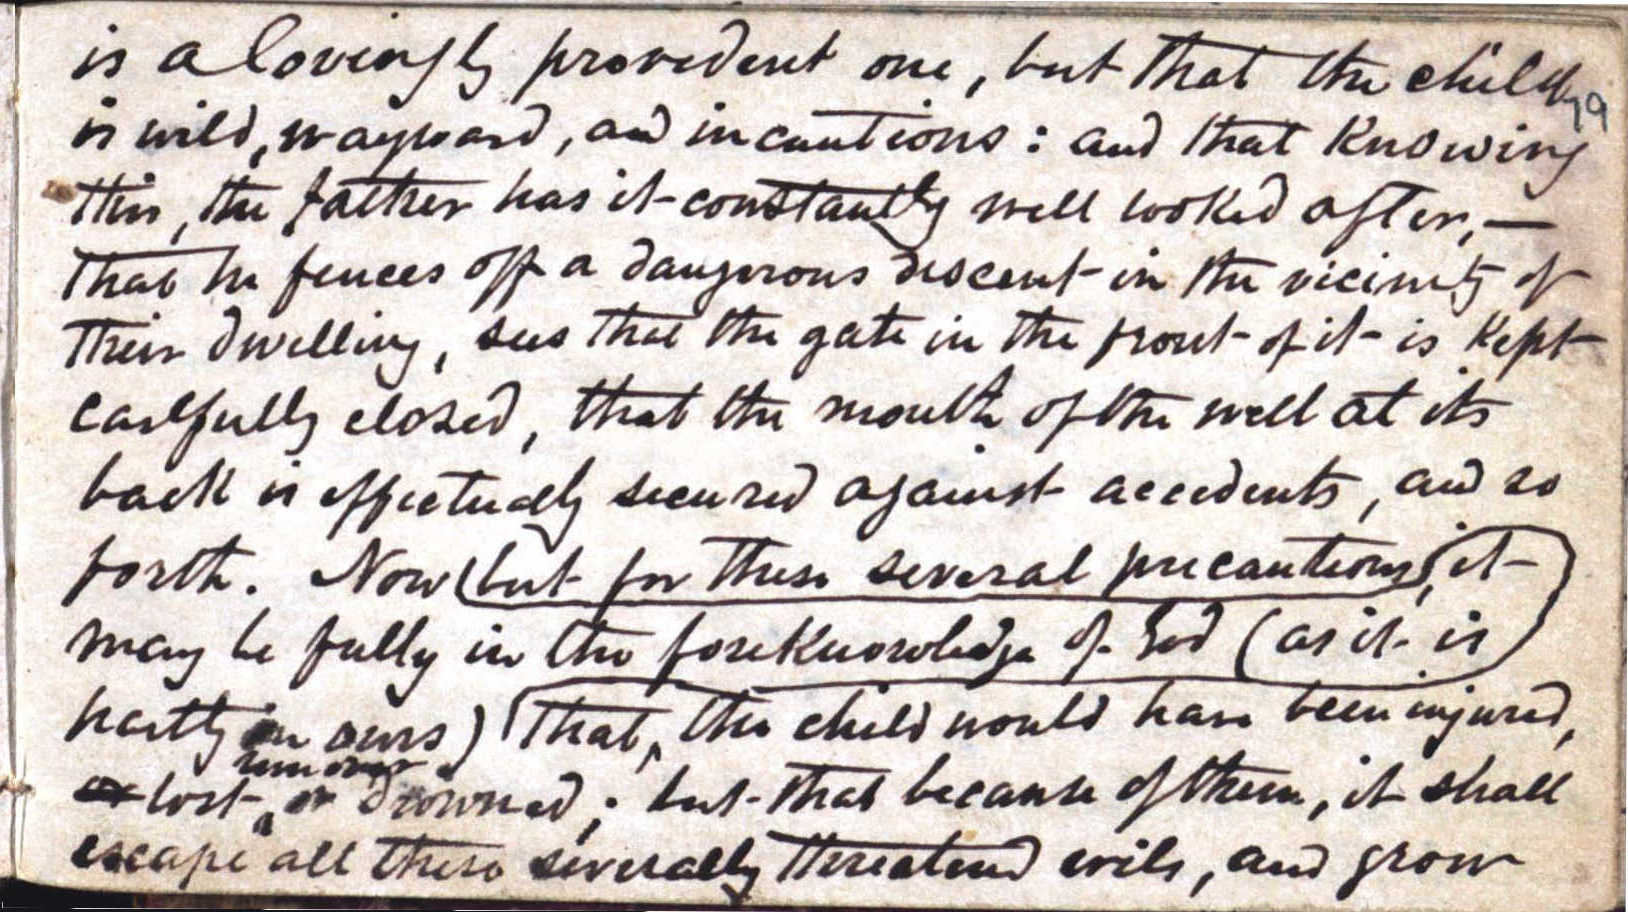 is a lovingly provedent one, but that the child
79
is wild, wayward, and incautions: and that Knowing
this, the father has it constantly well looked after, —
that he fences off a dangerous descent in the vicinity of
their dwelling, sees that the gate in the front of it is Kept
carefully closed, that the mouth of the well at its
back is effectually secured against accedents, and so
forth. Now (but for these several precautions, it
may be fully in the foreKnowledge of God (as it is
partly in ours) that, the child would have been injured,
lost, or drowned; but that because of them, it shall
escape all these severally threatend evils, and grow